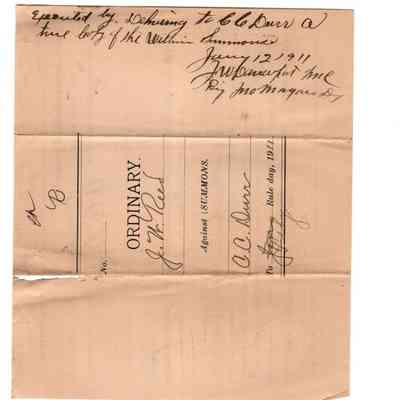 Executed by Delivering to C C Durr a
true Copy of the Within Summons
Jany 12 1911
By Jno Magers D
No.
ORDINARY.
J. W. Reed
Against } SUMMONS.
C. C. Durr
To Rule day, 1911.